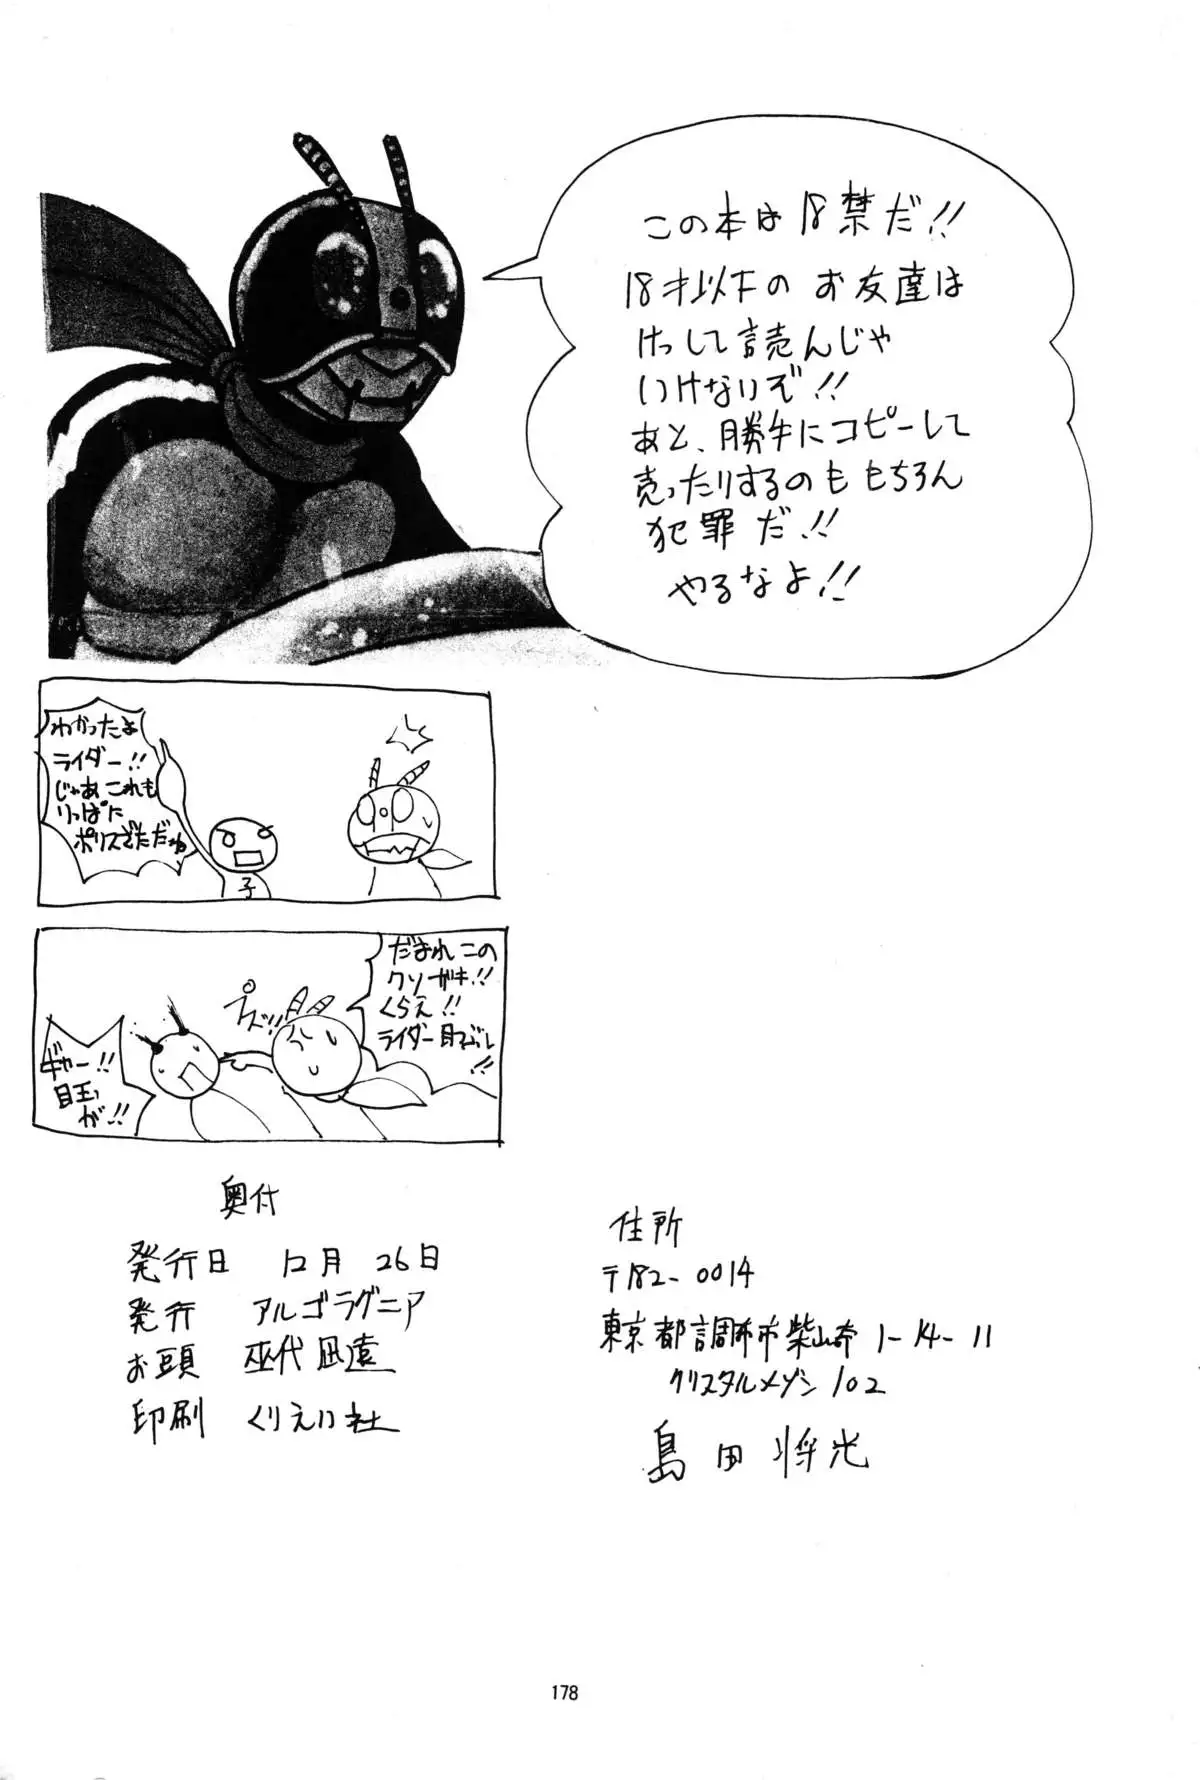 この本は18禁だ!!
18才以下のお友達は
けっして読んじゃ
いけないぞ!!
あと、勝手にコピーして
売ったりするのももちろん
犯罪だ!!
やるなよ!!
わかったよ
ライダー!!
じゃあこれも
りっぱに
ポリスざただね
子
だまれこの
クソガキ!!
くらえ!!
ライダー目つぶし
!!
ギャー!!
目玉っ
が!!
奥付
発行日 12月 26日
発行 アルゴラグニア
お頭 巫代凪遠
印刷 くりえい社
住所
〒182-0014
東京都調布市柴崎1-14-11
クリスタルメゾン102
島田将光
178